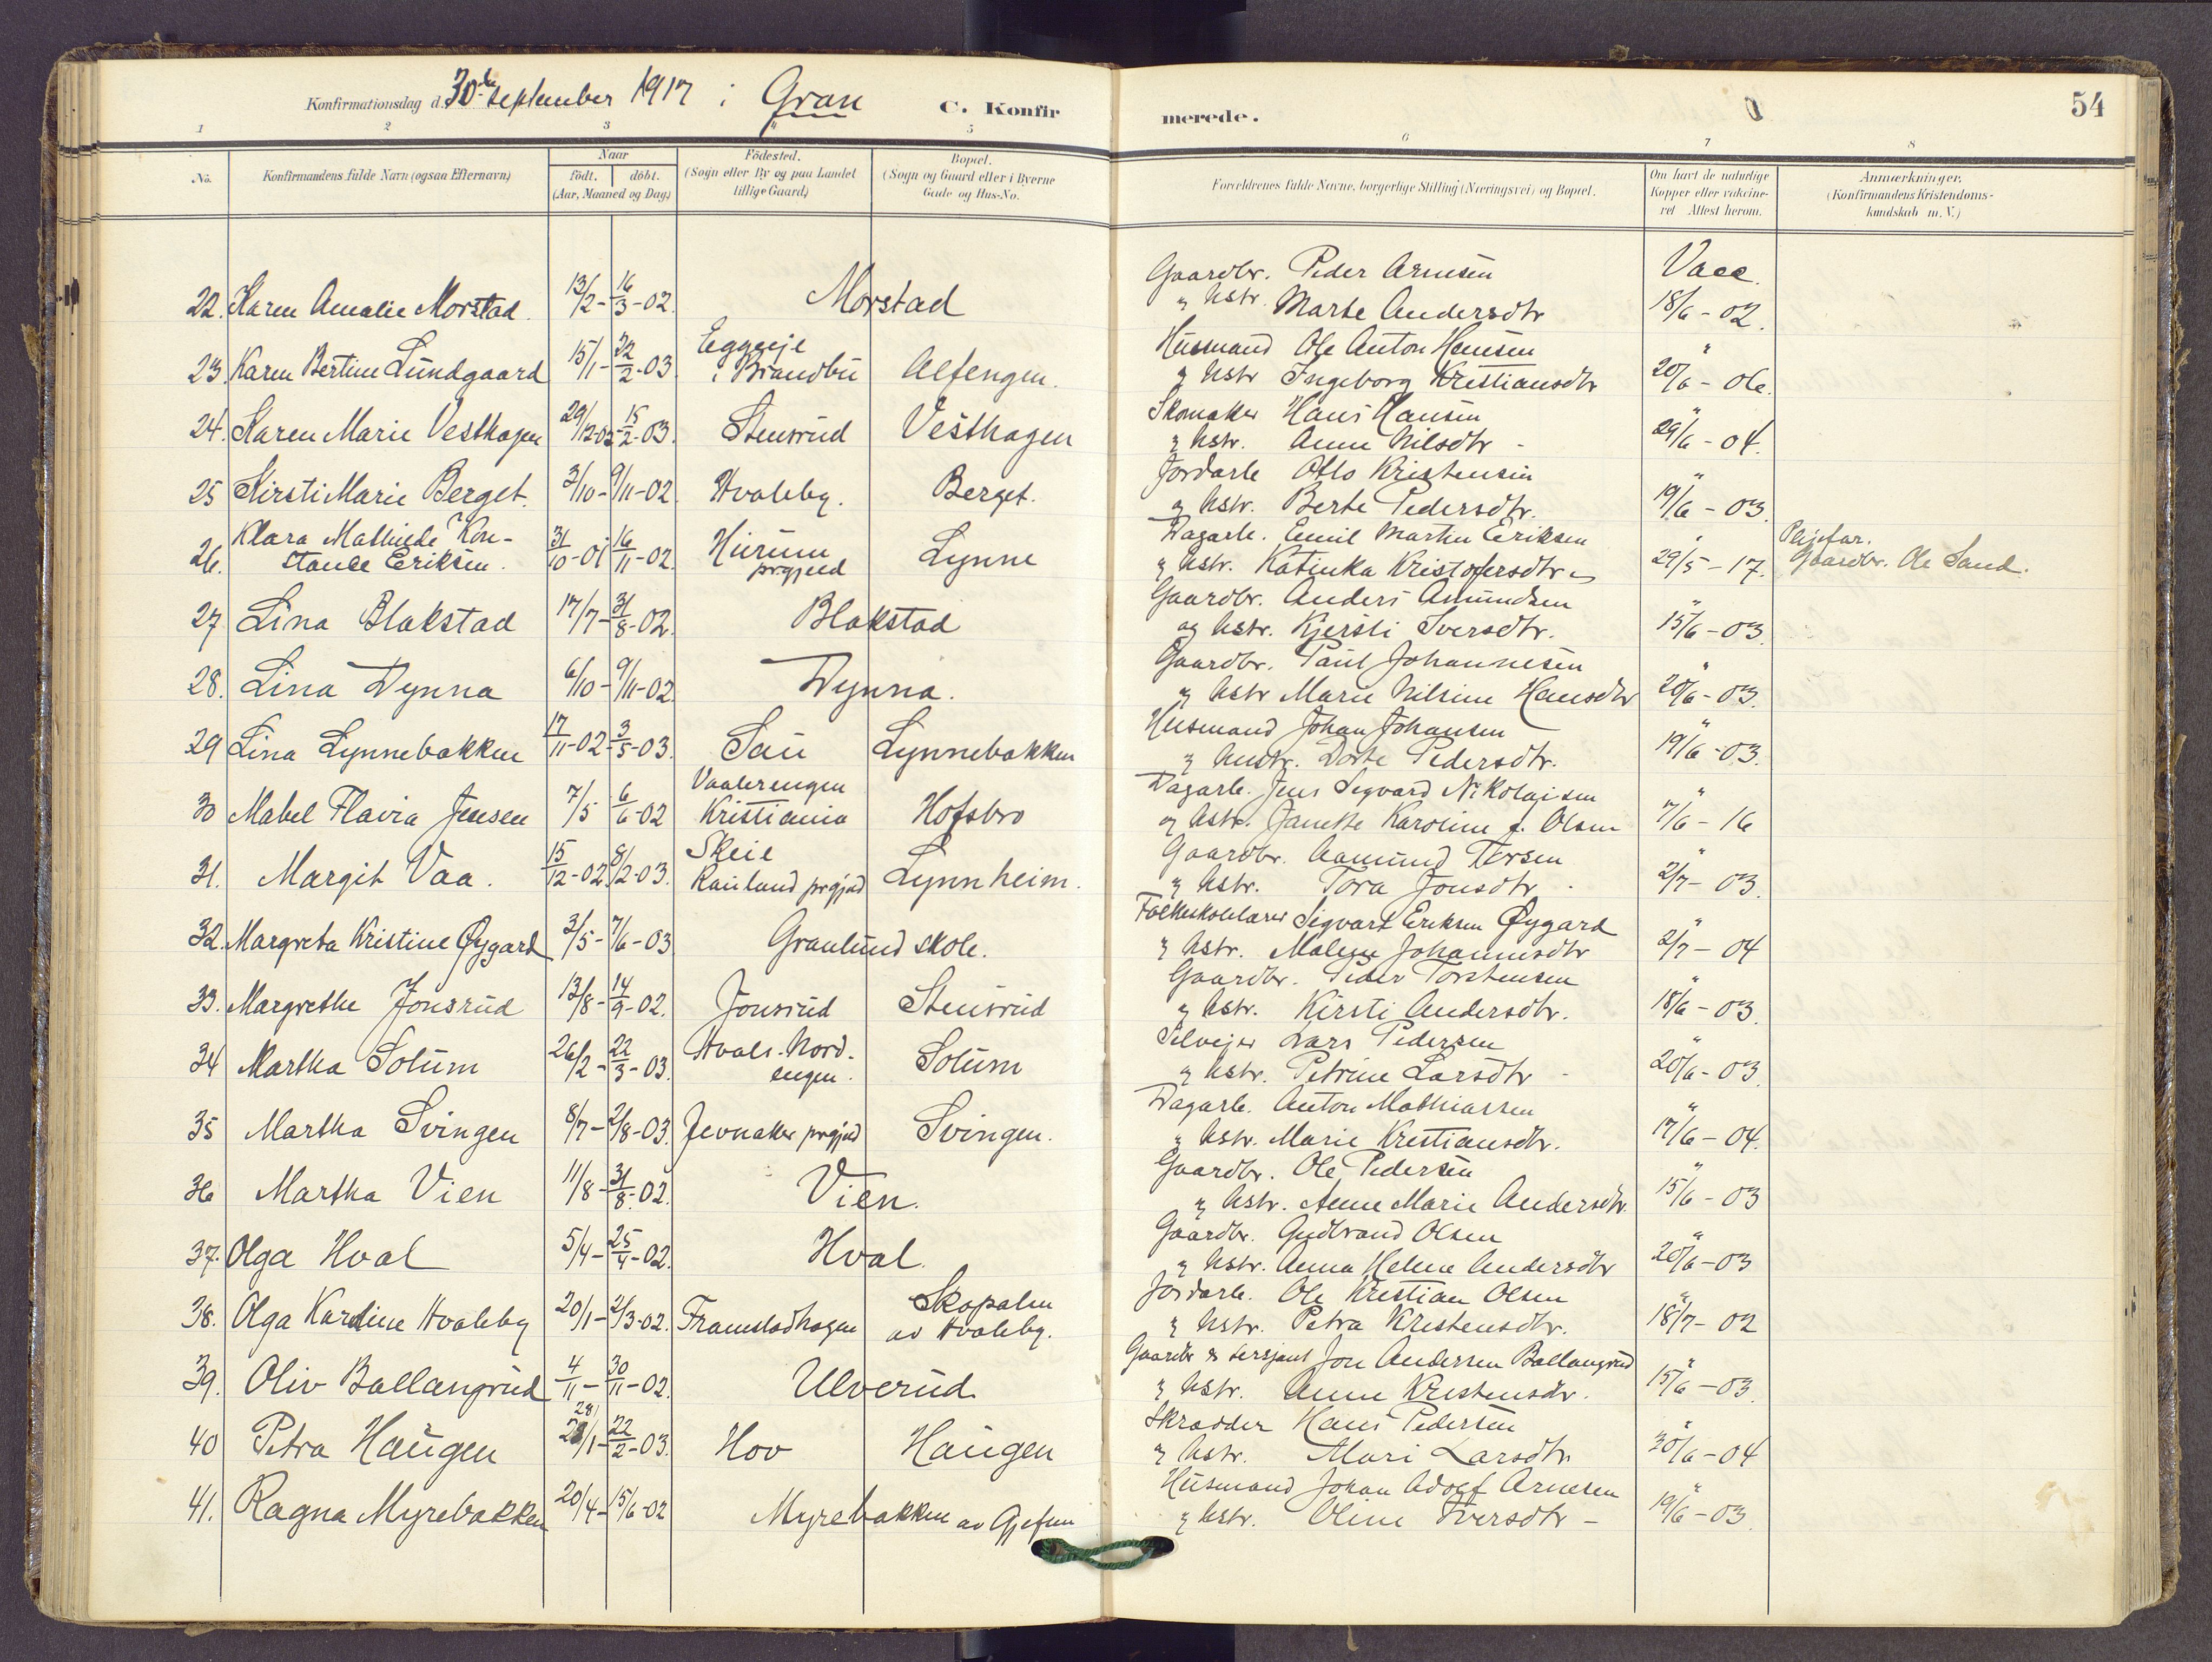 Konfirmationsdag d. 30te september 1917 i Gran
C. Konfirmerede.
54
1 2 3 5 6 7 8
No. Konfirmandens fulde Navn (ogsaa Efternavn) Naar født. døbt. (Aar, Maaned og Dag) Födested. (Sogn eller By og paa Landet tillige Gaard) Bopæl. (Sogn og Gaard eller i Byerne Gade og Hus-No. Forældrenes fulde Navne, borgerlige Stilling (Næringsvei) og Bopæl. Om havt de naturlige Kopper eller vakcineret Attest herom. Anmærkninger. (Konfirmandens Kristendomskundskab m. V.)
Gaardbr. Peder Arnesen Vacc.
22. Karen Amalie Morstad. 13/2 - 16/3 - 02. Morstad " hstr. Marte Andersdtr 18/6 - 02.
Eggeeje Husmand Ole Anton Hansen "
23. Karen Bertine Lundgaard 15/1 - 22/2 - 03 i Brandbu Alfengen. og hstr Ingeborg Kristiansdtr 20/6 - 06.
Skomaker Hans Hansen "
24. Karen Marie Vesthagen 29/12-02 - 15/2 - 03. Stensrud Vesthagen og hstr. Anne Nilsdtr - 29/6 - 04.
Jordarb Otto Kristensen "
25 Kirsti Marie Berget. 3/10 - 9/11 - 02. Hvaleby. Berget. og hstr. Berte Pedersdtr. 19/6 - 03.
Klara Mathilde Kon- Dagarb. Emil Martin Eriksen " Plejefar.
26. stance Eriksen. 31/10 - 01 16/11 - 02. Hurum prgjeld Lynne og hstr. Katinka Kristofersdtr 29/5 - 17. Gaardbr. Ole Sand.
Gaardbr. Anders Amundsen "
27 Lina Blakstad 17/7 - 31/8 - 02. Blakstad og hstr. Kjersti Iversdtr. 15/6 - 03.
Gaardbr. Paul Johannesen "
28. Lina Dynna 6/10 - 9/11 - 02. Dynna. og hstr Marie Nilsine Hansdtr 20/6 - 03.
Husmand Johan Johansen "
29 Lina Lynnebakken 17/11 - 02 - 3/5 - 03. Sau Lynnebakken og hustr. Dorte Pedersdtr. 19/6 - 03.
Vaalerengen Dagarb. Jens Segvard Nikolajsen "
30 Mabel Flavia Jensen 7/5 6/6 - 02 Kristiania Hofsbro og hstr. Janette Karoline f. Olsen 7/6 - 16
Skeie Gaardbr. Aamund Tersen "
31. Margit Vaa. 15/12 - 02. 8/2 - 03. Rauland prgjeld Lynnheim. og hstr. Tora Jonsdtr. 2/7 - 03
Folkeskolelærer Sigvart Eriksen Øygard "
32. Margreta Kristine Øygard 3/5 - 7/6 - 03 Granlund skole. og hstr. Malene Johannesdtr 2/7 - 04
Gaardbr. Peder Torstensen "
33. Margrethe Jonsrud 13/8 - 14/9 - 02. Jonsrud Stensrud og hstr. Kirsti Andersdtr. 18/6 - 03.
Hvals-Nord- Selvejer Lars Pedersen "
34 Martha Solum 26/2 - 22/3 - 03. engen. Solum og hstr. Petrine Larsdtr - 20/6 - 03.
Dagarb. Anton Mathiassen "
35 Martha Svingen 8/7 - 2/8 - 03. Jevnaker prgjeld Svingen. og hstr. Marie Kristiansdtr. 17/6 - 04.
Gaardbr. Ole Pedersen "
36 Martha Vien 11/8 - 31/8 - 02. Vien. og hstr. Anne Marie Andersdtr. 15/6 - 03
Gaardbr. Gudbrand Olsen "
37. Olga Hval 5/4 - 25/4 - 02. Hval. og hstr. Anna Helene Andersdtr 20/6 - 03
Skopalen Jordarb. Ole Kristian Olsen "
38. Olga Karoline Hvaleby 20/1 - 2/3 - 02. Framstadhagen av Hvaleby. og hstr. Petra Kristensdtr. 18/7 - 02
Gaardbr & sersjant Jon Andersen Ballangrud "
39. Oliv Ballangrud 4/11 - 30/11 - 02. Ulverud. og hstr. Anne Kristensdtr. 15/6 - 03.
28 Skrædder Hans Pedersen "
40 Petra Haugen 28/1 - 22/2 - 03. Hov Haugen og hstr. Mari Larsdtr. 30/6 - 04
Husmand Johan Adolf Arnesen "
41. Ragna Myrebakken 20/4 - 15/6 - 02 Myrebakken av Gjefsen og hstr. Oline Iversdtr - 19/6 - 03.